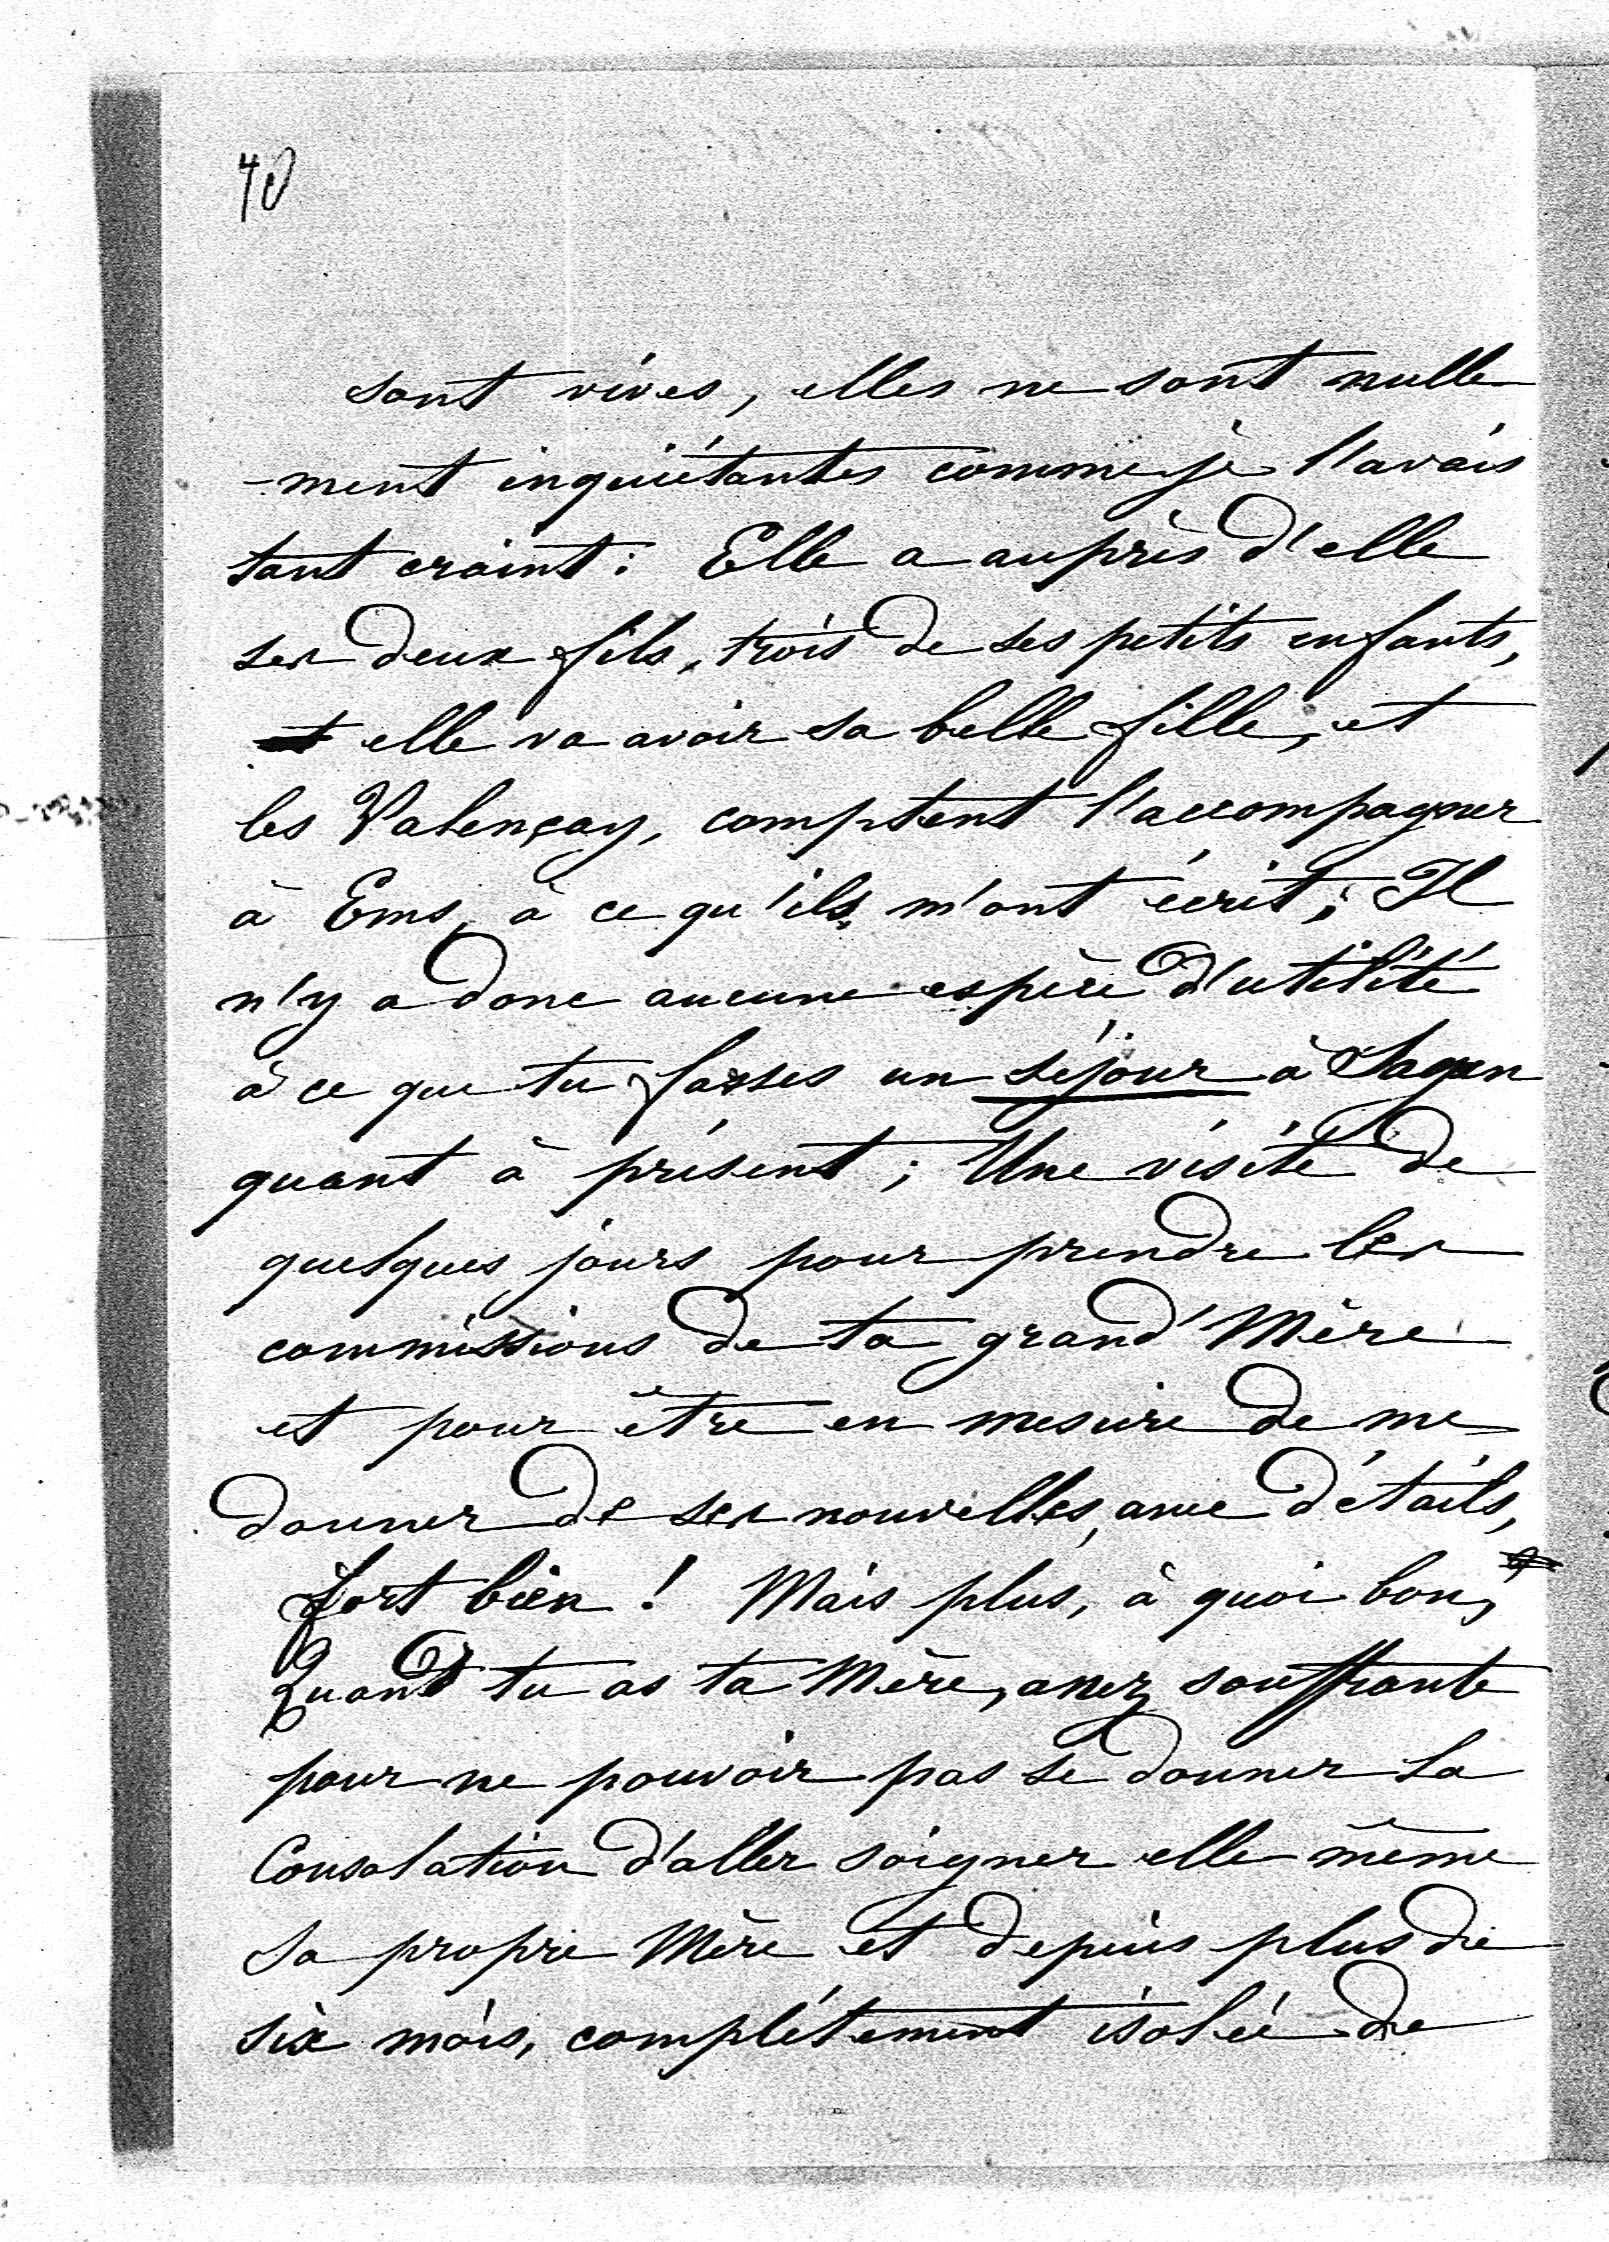 40
sont vives, elles ne sont nulle
-ment inquiétantes comme je l'avais
tant craint: Elle a auprès d'elle
ses deux fils, trois de ses petits enfants,
elle va avoir sa belle fille, et
les Valençay, comptent l'accompagner
à Ems, à ce qu'ils m'ont écrit; Il
n'y a donc aucune espèce d'utilité
à ce que tu fasses un séjour à Sagan
quant à présent; Une visite de
quelques jours pour prendre les
commissions de ta grand'Mère
et pour être en mesure de me
donner de ses nouvelles, avec détails,
fort bien! Mais plus, à quoi bon,
Quand tu as ta Mère, assez souffrante
pour ne pouvoir pas se donner la
Consolation d'aller soigner elle même
sa propre Mère et depuis plus de
six mois, complétement isolée de